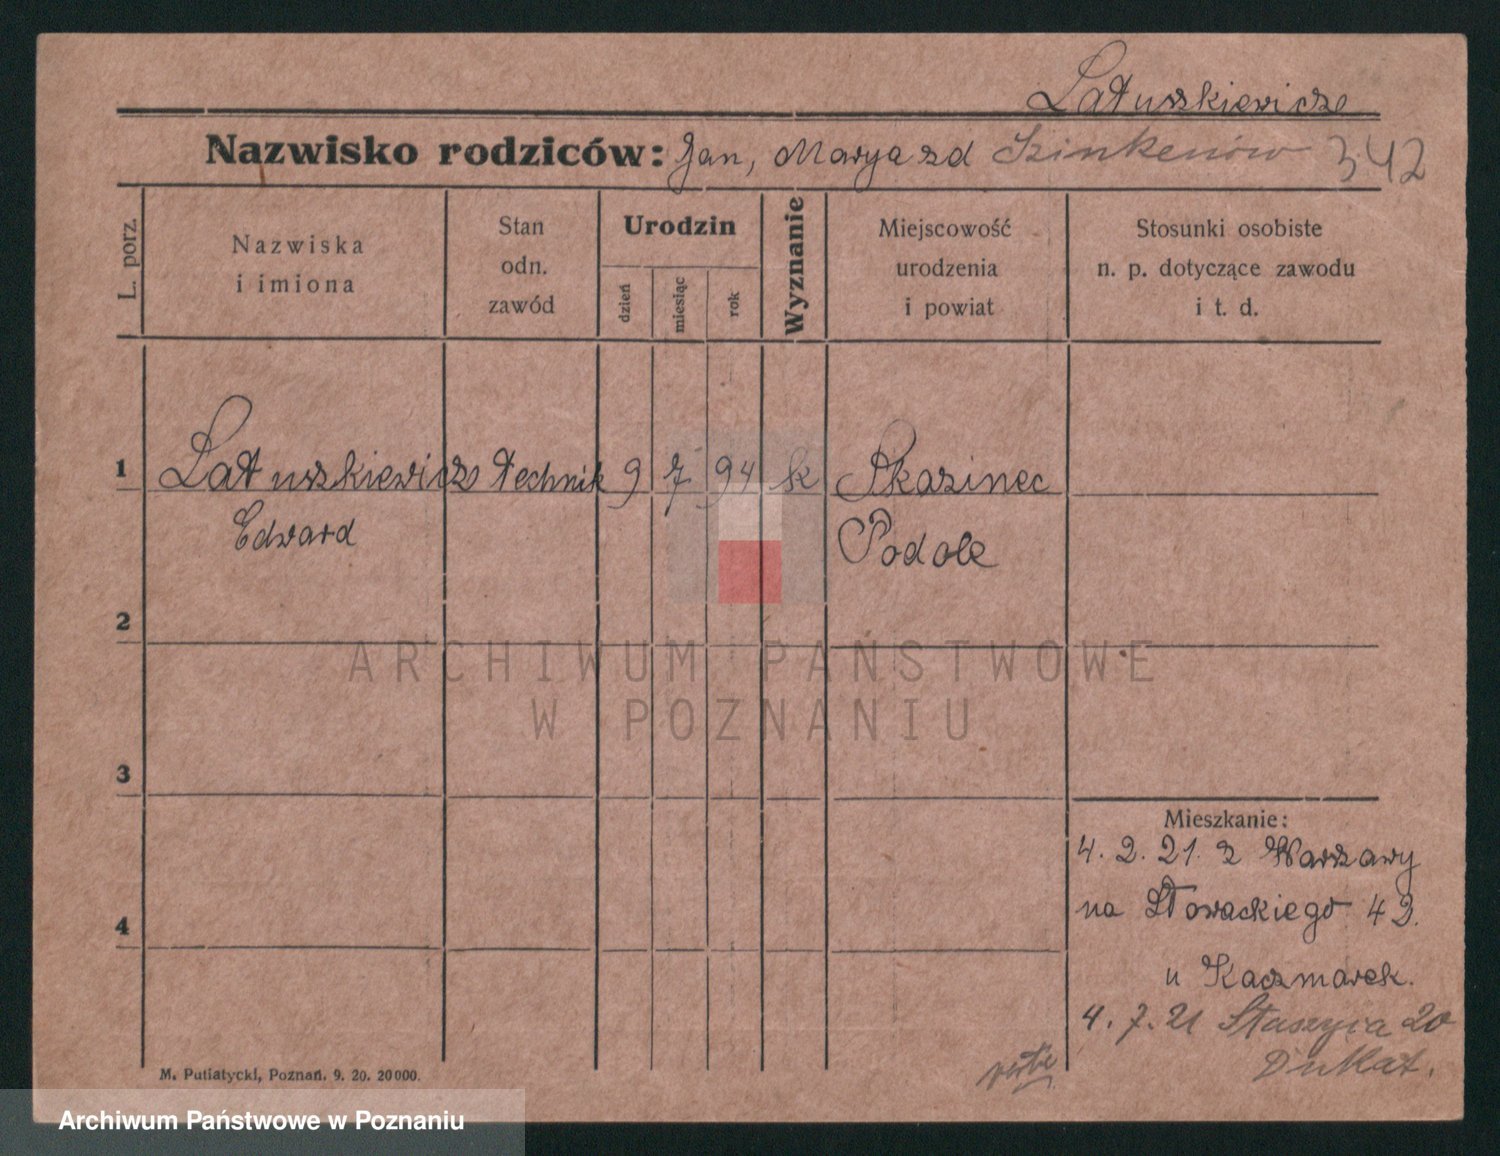 Latuszkiewicz
Nazwisko rodziców: Jan, Marya zd Szinkenów 342
L. porz.
Nazwiska
i imiona
Stan
odn.
zawód
Urodzin
dzień
miesiąc
rok
Wyznanie
Miejscowość
urodzenia
i powiat
Stosunki osobiste
n. p. dotyczące zawodu
i t. d.
1 Latuszkiewicz technik 9 7 94 k Skazinec
Edward Podole
2
3
4
Mieszkanie:
4. 2. 21. z Warszawy
na Słowackiego 42.
u Kaczmarek.
4. 7. 21 Staszyca 20
Dukat.
verte
M. Putiatycki, Poznań. 9. 20. 20000.
ARCHIWUM PAŃSTWOWE
W POZNANIU
Archiwum Państwowe w Poznaniu